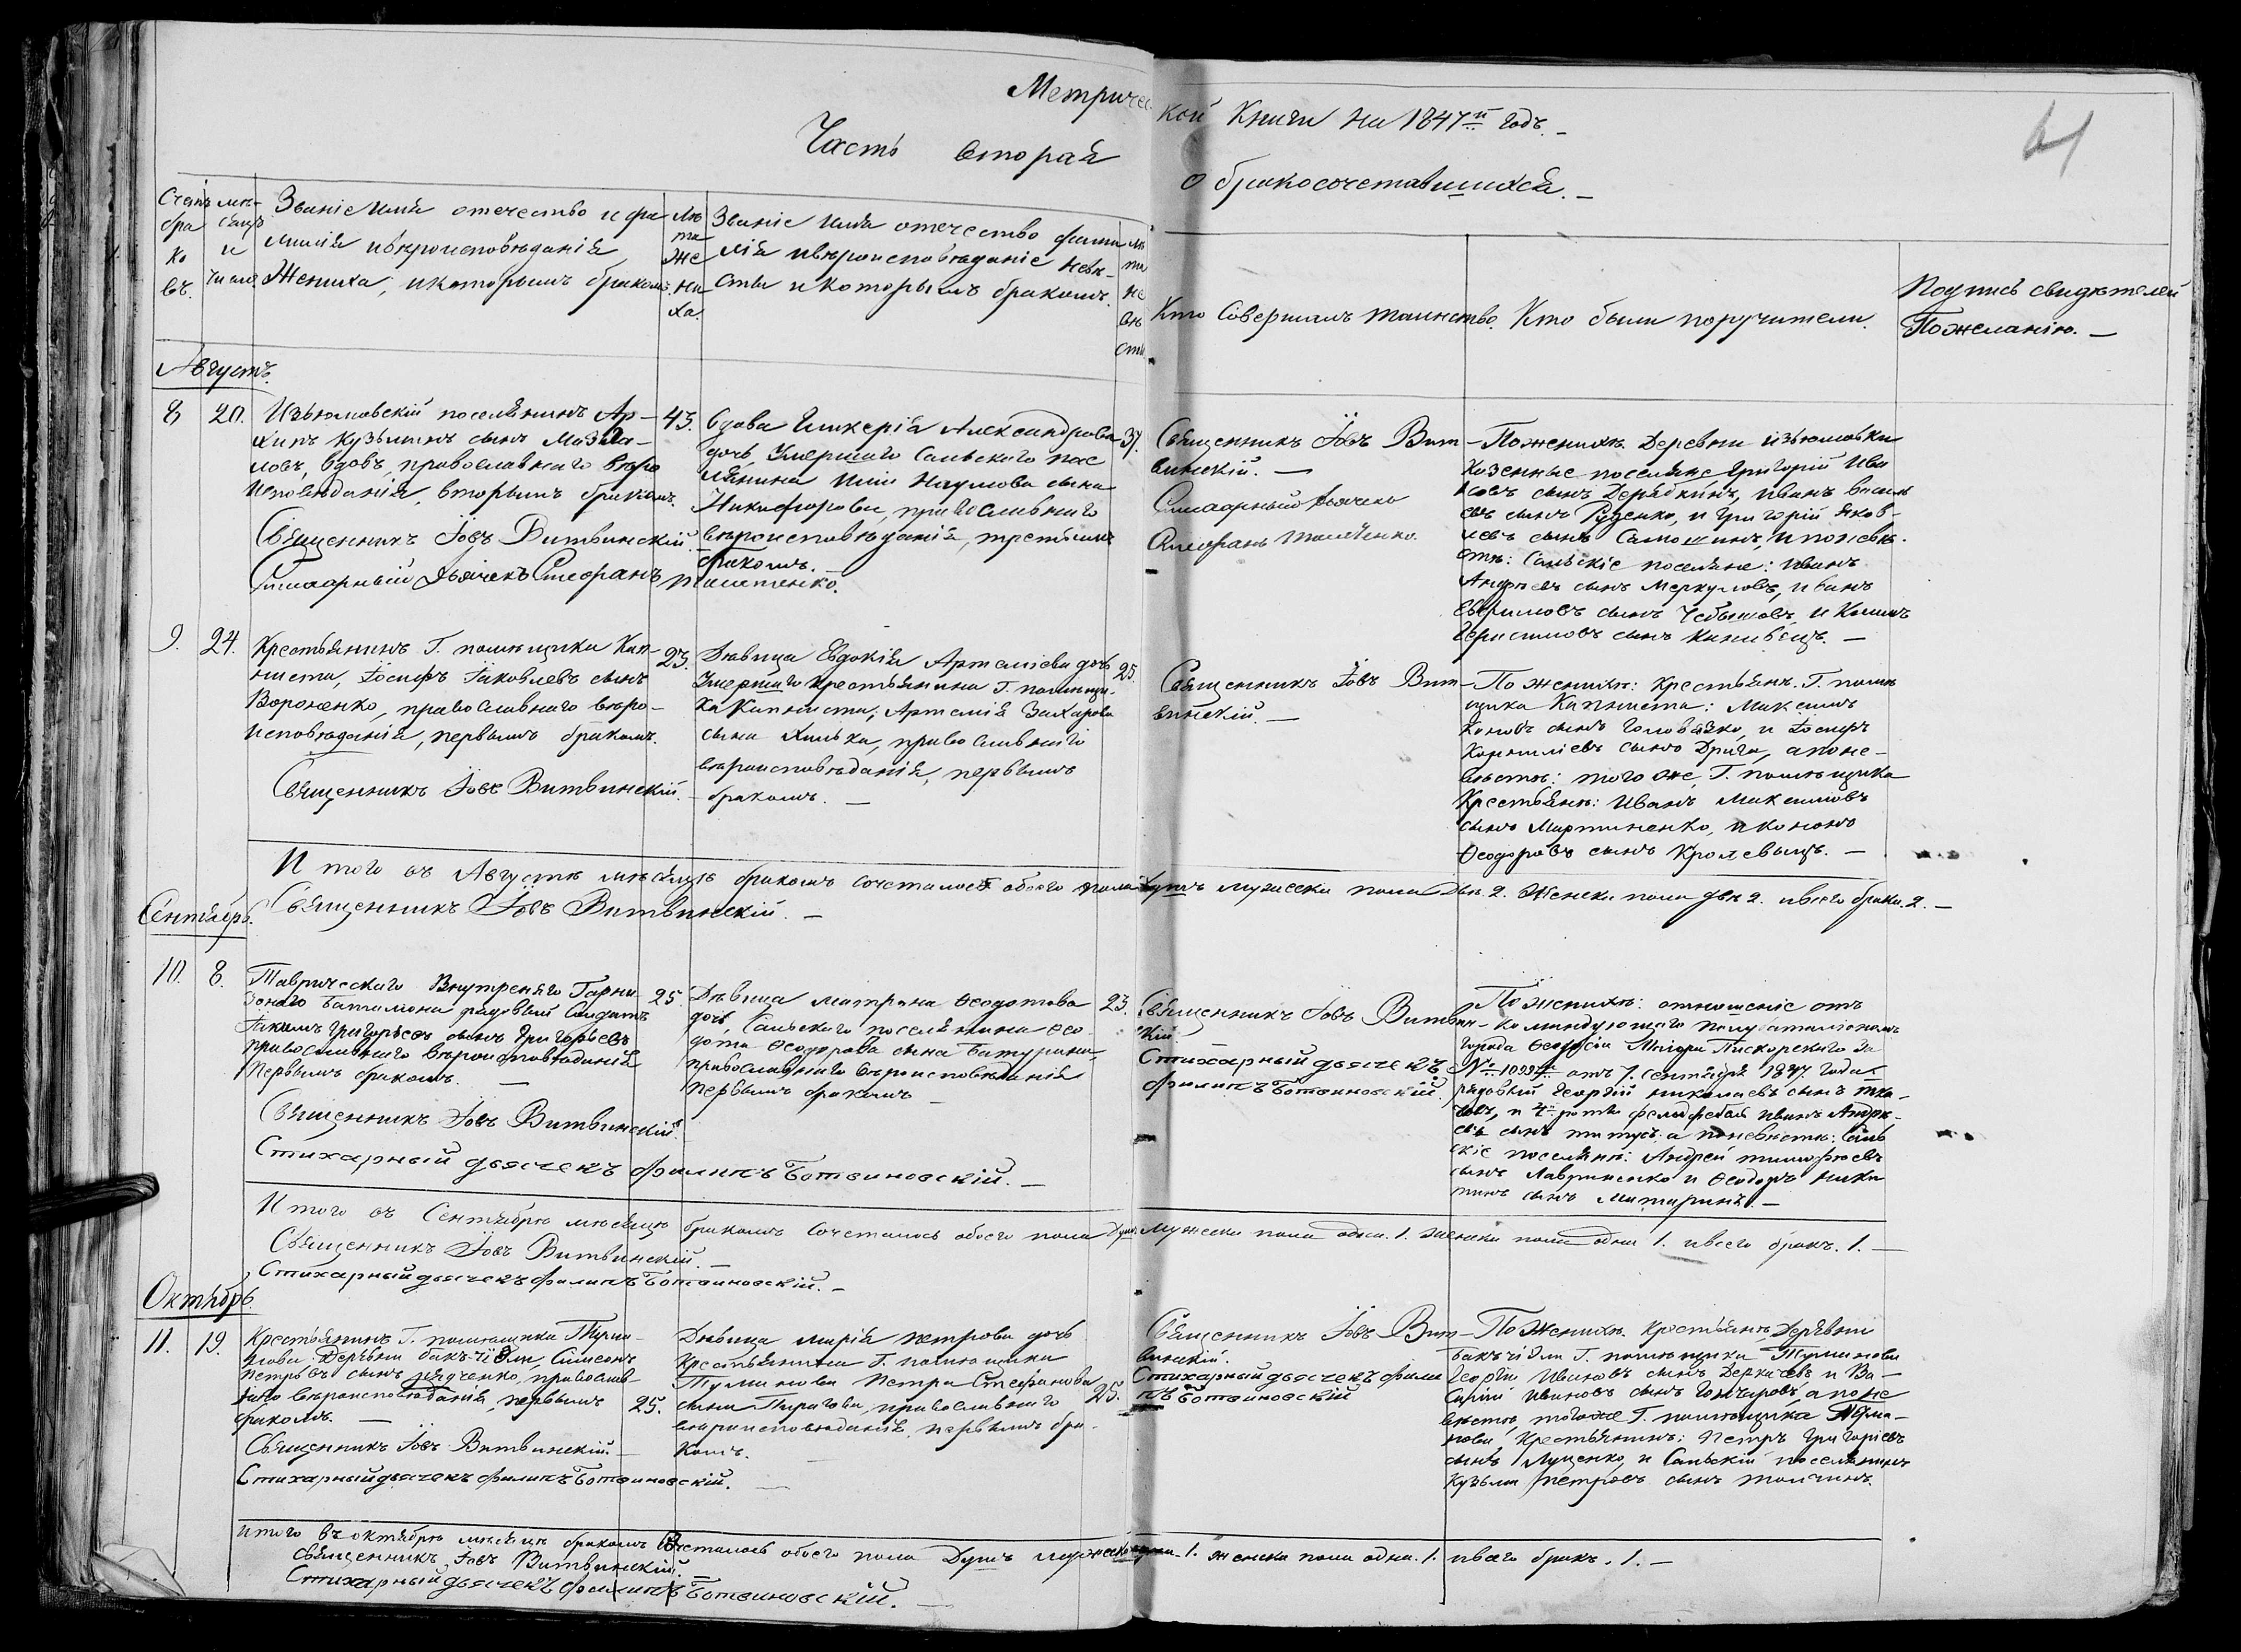 Метричес кой Книги на 1847й годъ.
Часть вторая о бракосочетавшихся.
41
Счетъ бра ко въ.
мѣ- сяцъ и число
Званіе Имя отечество и фа
милія ивѣроисповѣданія
Жениха, икоторымъ бракомъ.
Лѣ та Же ни ха.
Званіе имя отечество фами
лія ивѣроисповѣданіе невѣ-
сты икоторымъ бракомъ.
лѣ та не вѣ сты
Кто Совершалъ таинство.
Кто были поручители.
Подпись свидѣтелей
Пожеланію.
Августъ.
8 20.
Изъюмовскій поселянинъ Ар-
хипъ Кузьминъ сынъ
вдовъ, православнаго вѣро
исповѣданія, вторымъ бракомъ.
Священникъ Іовъ Витвинскій.
Стихарный Дьячекъ Стефанъ
43.
Вдова Гликерія Александрова
дочь Умершаго Сальского пос
лянина Наумова сына
Никифорова, православнаго
вѣроисповѣданія, третьимъ
бракомъ.
37.
Священникъ Іовъ Вит-
винскій.
Стихарный дьячекъ
Стефанъ
Поженихѣ Деревни изъюмовки
казенные поселяне Григорій Ива
новъ сынъ Дерябкинъ, иванъ василь
евъ сынъ Руденко, и Григорій яков-
левъ сынъ Самошинъ, и поневѣ-
стѣ: Сальскіе поселяне: Иванъ
Андреевъ сынъ Меркуловъ, иванъ
Ефимовъ сынъ
Герасимовъ сынъ
9. 24.
Крестьянинъ Г. помѣщика Кап-
ниста, Іосифъ Іаковлевъ сынъ
Вороненко, православнаго вѣро-
исповѣданія, первымъ бракомъ.
Священникъ Іовъ Витвинскій.
23.
Дѣвица Евдокія Артеміева дочь
Умершаго крестьянина Г. помѣщи-
ка Капниста; Артемія Захарова
сына православнаго
вѣроисповѣданія, первымъ
бракомъ.
25.
Священникъ Іовъ Вит-
винскій.
По женихѣ: крестьянъ. Г. помѣ
щика Капниста: Максимъ
сынъ и Іосифъ
Корниліевъ сынъ Драга, апоне-
вѣстѣ: того же, Г. помѣщика
Крестьянъ: Иванъ Максимовъ
сынъ Мартиненко, иконовъ
Ѳеодоровъ сынъ Кролевецъ.
И того въ Августѣ мѣсяцѣ бракомъ сочеталось обоего пола Душъ мужеска пола Двѣ 2. Женска пола двѣ 2. ивсего брака. 2.
Священникъ Іовъ Витвинскій.
Сентябрь.
10. 8.
Таврическаго Внутренняго Гарни
зонаго баталіона рядовый Солдатъ
Іакимъ Григорьевъ сынъ Григорьевъ
православнаго вѣроисповѣданія
Первымъ бракомъ.
Священникъ Іовъ Витвинскій.
Стихарный дьячекъ Филипъ Ботвиновскій.
25.
Дѣвица матрона Ѳеодотова
дочь, Сальского поселянина Ѳео-
дота Ѳеодорова сына Батурина,
православнаго вѣроисповѣданія
первымъ бракомъ
23.
Священникъ Іовъ Витвин-
скій.
Стихарный дьячекъ
Филипъ Ботвиновскій.
По женихѣ: отношеніе отъ
командующаго полубаталіономъ
города Ѳеодосіи Маіора Пискорскаго за
№ отъ 7. сентября 1847. года
рядовый Георгій николаевъ сынъ тка-
човъ, и 4й роты фелдфебель иванъ Андре-
евъ сынъ титусъ: а поневѣстѣ: Саль
скіе поселяне: Андрей тимофѣевъ
сынъ Лавриненко и Ѳеодоръ ники
тинъ сынъ
Итого въ Сентябрѣ мѣсяцѣ бракомъ сочеталось обоего пола Душъ мужеска пола одна. 1. женска пола одна 1. ивсего бракъ. 1.
Священникъ Іовъ Витвинскій.
Стихарный дьячекъ Филипъ Ботвиновскій.
Октябрь
11. 19.
Крестьянинъ Г. помѣщика Тума-
нова Деревни бакъ-чіэли, Симеонъ
Петровъ сынъ православ-
наго вѣроисповѣданія, первымъ
бракомъ.
Священникъ Іовъ Витвинскій.
Стихарный дьячекъ Филипъ Ботвиновскій.
25.
Дѣвица марія петрова дочь
Крестьянина Г. помѣщика
Туманова Петра Стефанова
сына Пирогова, православнаго
вѣроисповѣданія, первымъ бра-
комъ.
25.
Священникъ Іовъ Вит-
винскій.
Стихарный дьячекъ Фили
пъ Ботвиновскій
По женихѣ. крестьяне, Деревни
бакъчіэли Г. помѣщика Туманова
Георгій Ивановъ сынъ Деркачевъ, и Ва-
силій Ивановъ сынъ Гончаровъ, а поне
вѣстѣ, тогоже Г. помѣщика Тума-
нова Крестьянинъ: Петръ григоріевъ
сынъ Луценко, и Сальскій поселянинъ
Кузьма петровъ сынъ толчинъ.
итого въ октябрѣ мѣсяцѣ бракомъ сочеталось обоего пола Душъ мужеска 1. женска пола одна. 1. ивсего бракъ. 1.
Священникъ Іовъ Витвинскій.
Стихарный дьячекъ Филипъ Ботвиновскій.